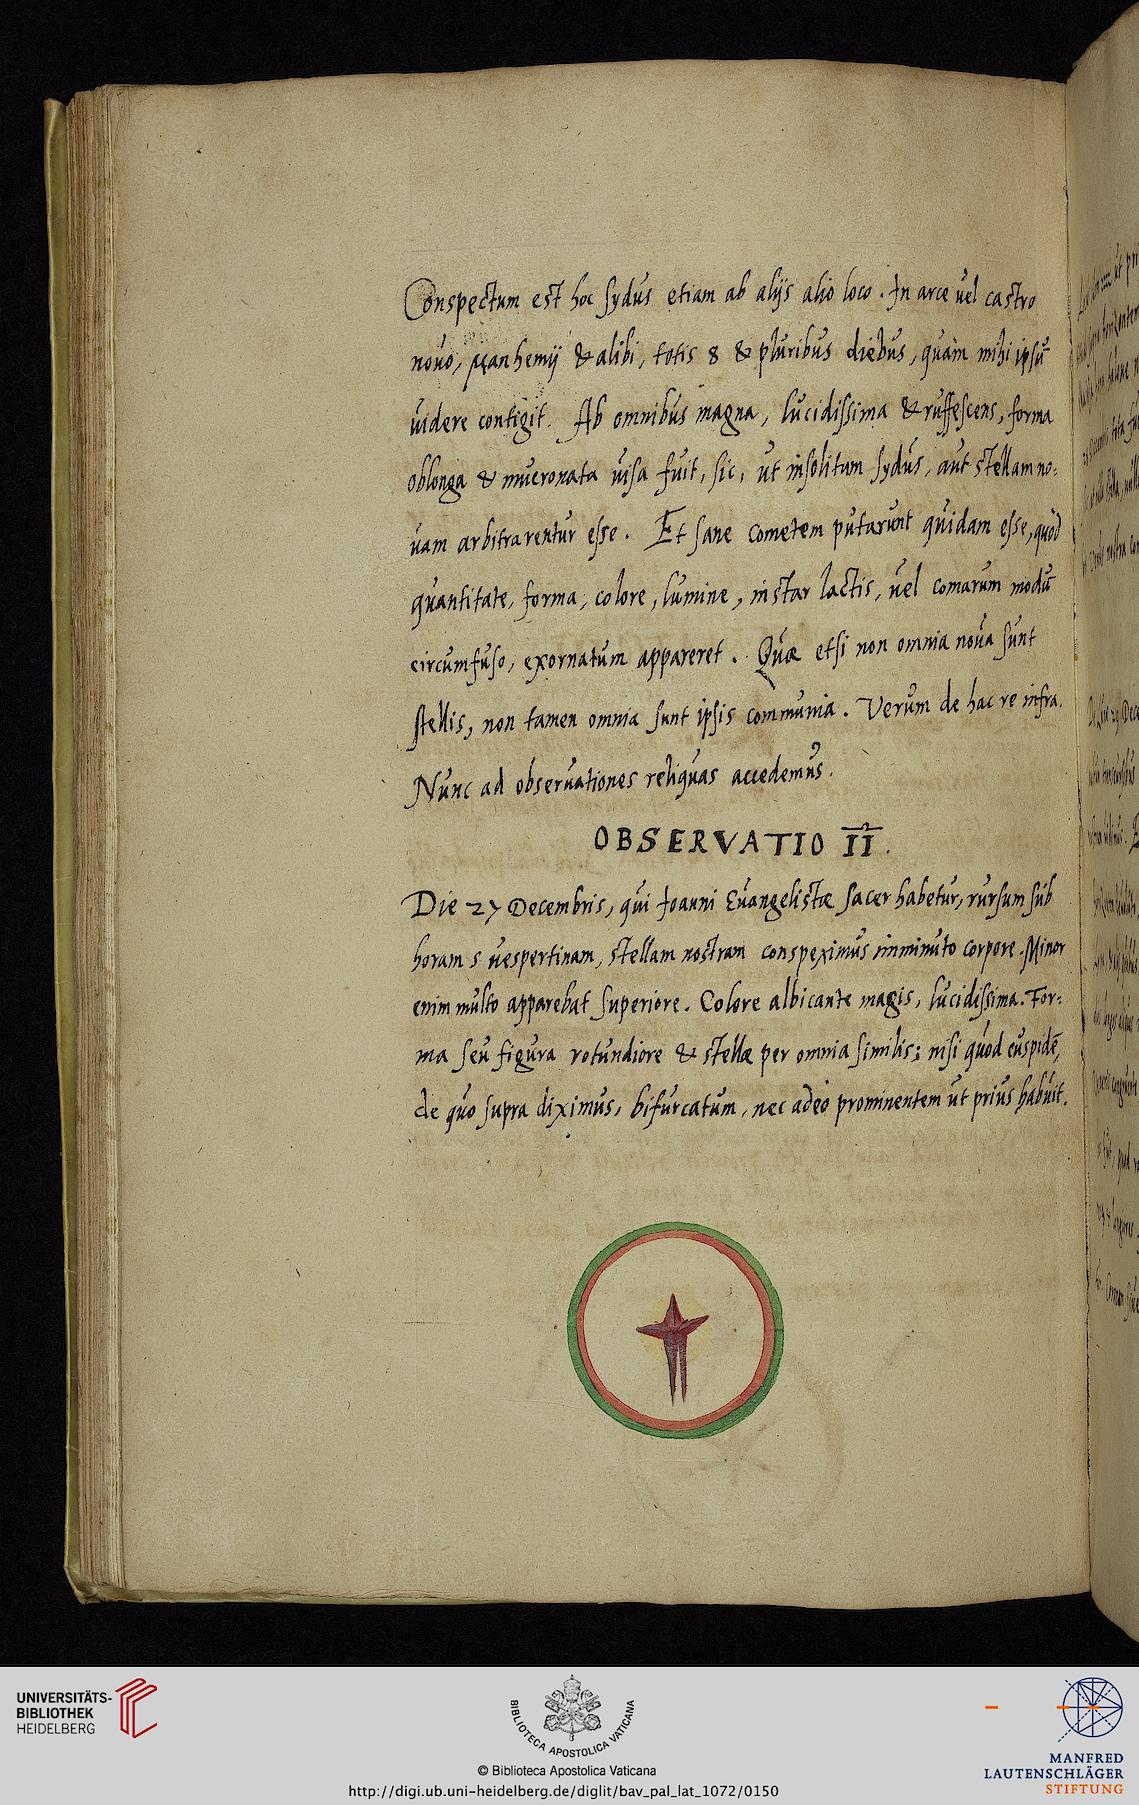 Conspectum est hoc sydus etiam ab alijs alio loco. In arce vel castro
novo, Manhemij & alibi, totis 8 & pluribus diebus, quàm mihi ipsū
videre contigit. Ab omnibus magna, lucidissima & ruffescens, forma
oblonga & mucronata visa fuit, sic, ut insolitum sydus, aut stellam no:
vam arbitrarentur esse. Et sane cometem putarunt quidam esse, quòd
quantitate, forma, colore, lumine, instar lactis, vel comarum modū
circumfuso, exornatum appareret. Quæ etsi non omnia nova sunt
stellis, non tamen omnia sunt ipsis communia. Verum de hac re infra.
Nunc ad observationes reliquas accedemus.
OBSERVATIO II.
Die 27 Decembris, qui Joanni Evangelistæ sacer habetur, rursum sub
horam 5 vespertinam, stellam nostram conspeximus imminuto corpore. Minor
enim multo apparebat superiore. Colore albicante magis, lucidissima. For:
ma seu figura rotundiore & stellæ per omnia similis; nisi quod cuspidē,
de quo supra diximus, bifurcatum, nec adeò prominentem ut prius habuit.
UNIVERSITÄTS-
BIBLIOTHEK
HEIDELBERG
BIBLIOTECA APOSTOLICA VATICANA
© Biblioteca Apostolica Vaticana
http://digi.ub.uni-heidelberg.de/diglit/bav_pal_lat_1072/0150
MANFRED
LAUTENSCHLÄGER
STIFTUNG